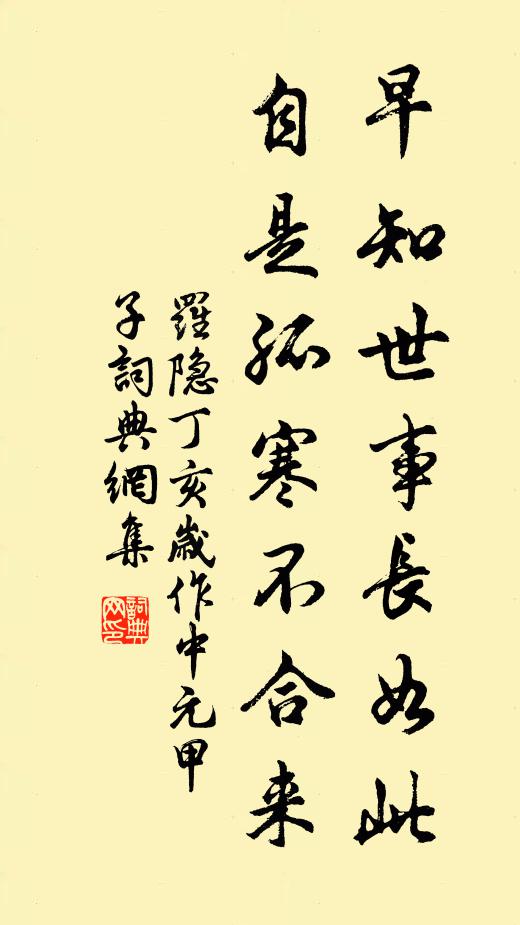 早知世事長如此
自是孤寒不合来
羅隐丁亥歳作中元甲
子詞典網集
詞典
网印